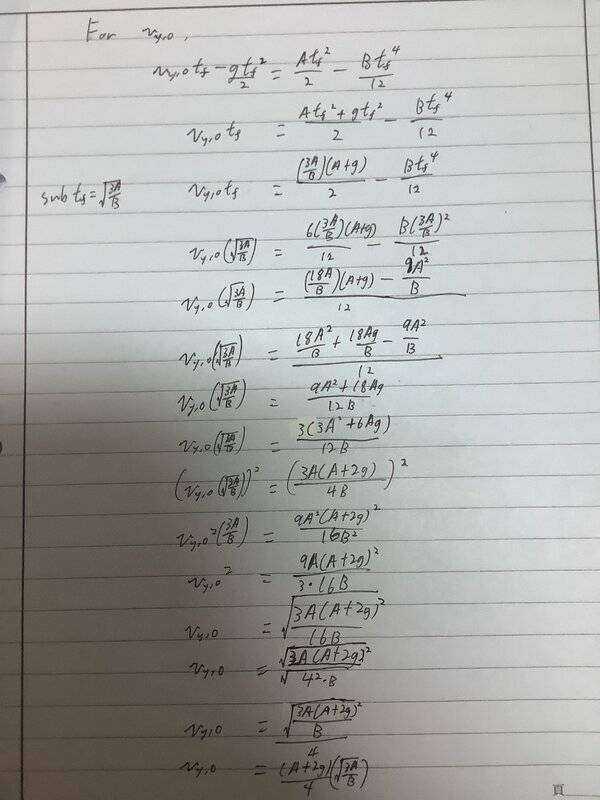 For v_{y,0},
v_{y,0} t_f - \frac{g t_f^2}{2} = \frac{A t_f^2}{2} - \frac{B t_f^4}{12}
v_{y,0} t_f = \frac{A t_f^2 + g t_f^2}{2} - \frac{B t_f^4}{12}
sub t_f = \sqrt{\frac{3A}{B}} v_{y,0} t_f = \frac{(\frac{3A}{B})(A+g)}{2} - \frac{B t_f^4}{12}
v_{y,0} (\sqrt{\frac{3A}{B}}) = \frac{6(\frac{3A}{B})(A+g)}{12} - \frac{B(\frac{3A}{B})^2}{12}
v_{y,0} (\sqrt{\frac{3A}{B}}) = \frac{(\frac{18A}{B})(A+g) - \frac{9A^2}{B}}{12}
v_{y,0} (\sqrt{\frac{3A}{B}}) = \frac{\frac{18A^2}{B} + \frac{18Ag}{B} - \frac{9A^2}{B}}{12}
v_{y,0} (\sqrt{\frac{3A}{B}}) = \frac{9A^2 + 18Ag}{12B}
v_{y,0} (\sqrt{\frac{3A}{B}}) = \frac{3(3A^2 + 6Ag)}{12B}
(v_{y,0} (\sqrt{\frac{3A}{B}}))^2 = (\frac{3A(A+2g)}{4B})^2
v_{y,0}^2 (\frac{3A}{B}) = \frac{9A^2(A+2g)^2}{16B^2}
v_{y,0}^2 = \frac{9A(A+2g)^2}{3 \cdot 16B}
v_{y,0} = \sqrt{\frac{3A(A+2g)^2}{16B}}
v_{y,0} = \frac{\sqrt{3A(A+2g)^2}}{\sqrt{4^2 \cdot B}}
v_{y,0} = \frac{\sqrt{\frac{3A(A+2g)^2}{B}}}{4}
v_{y,0} = \frac{(A+2g)}{4} (\sqrt{\frac{3A}{B}})
頁